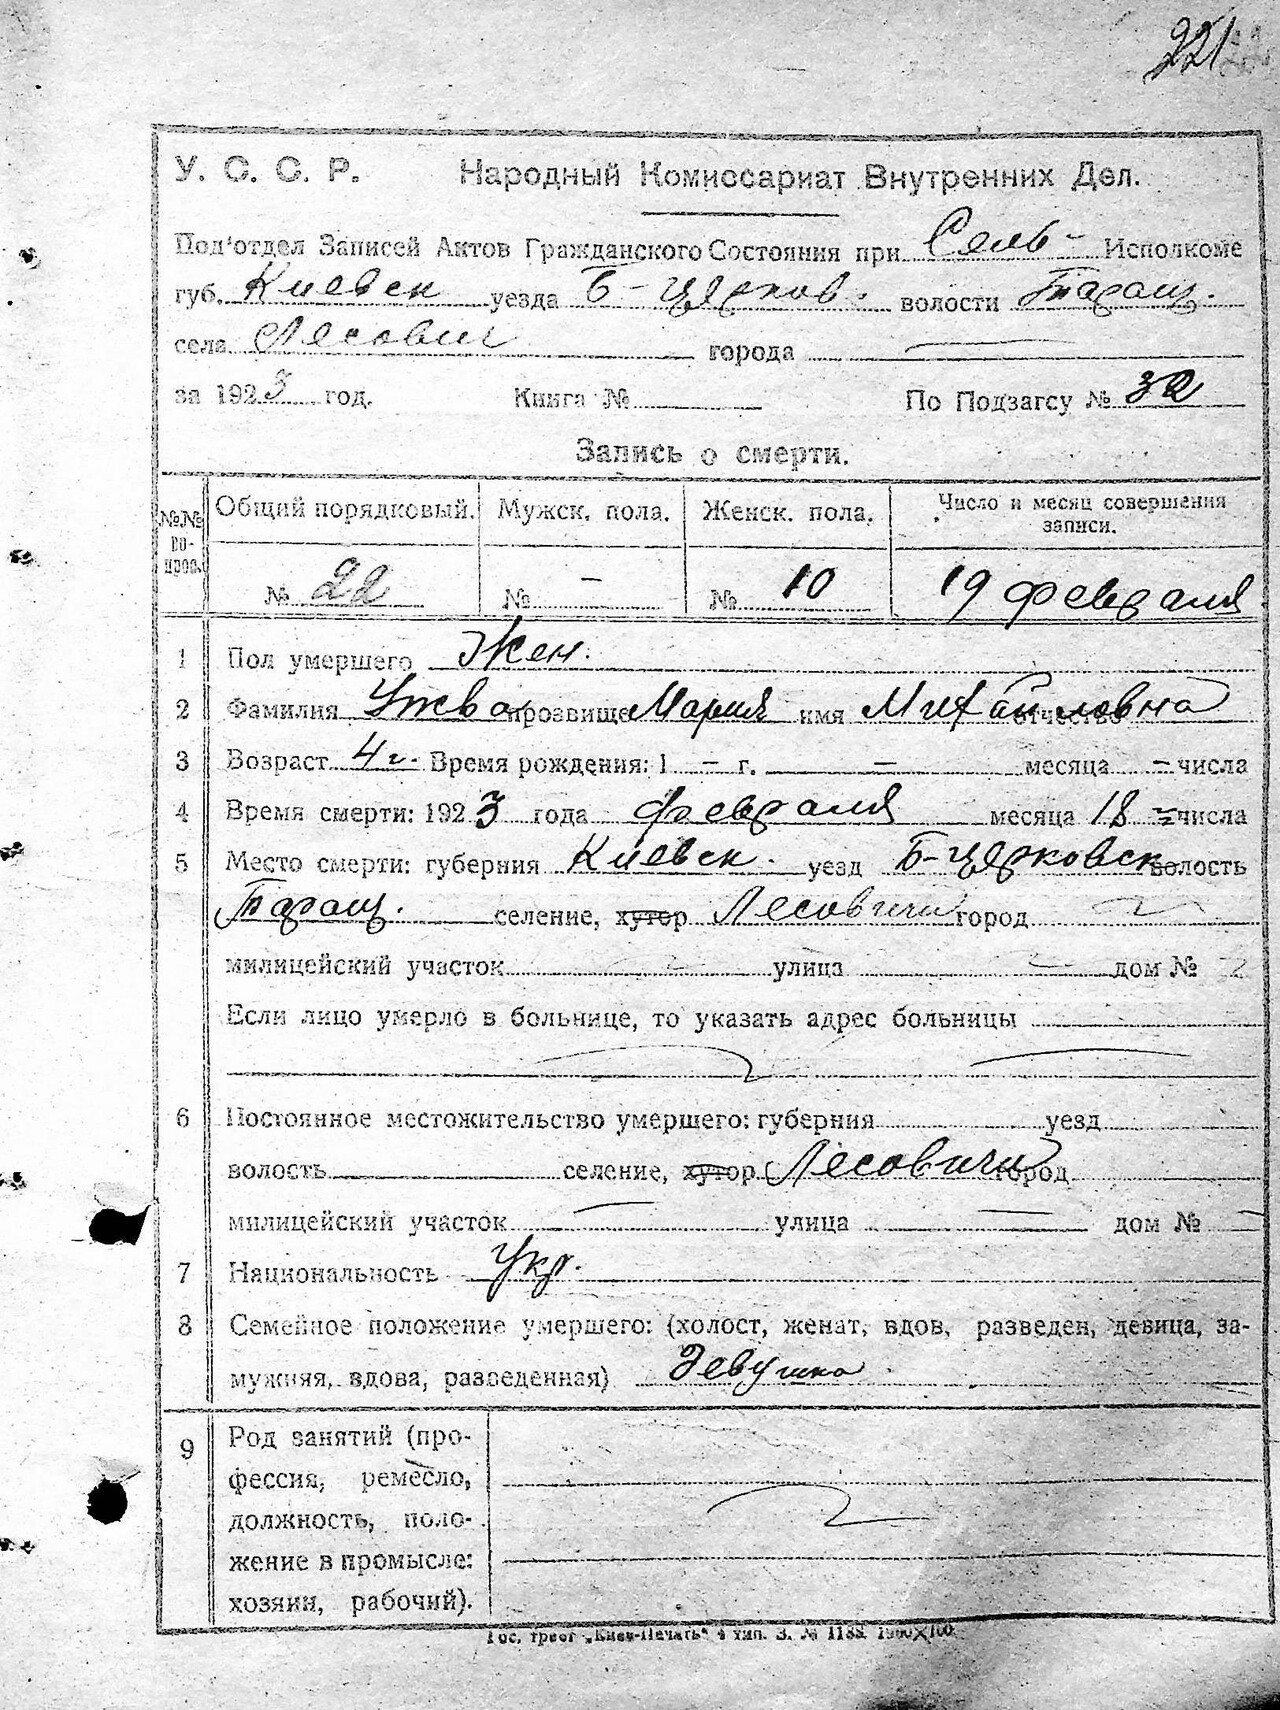 221
У. С. С. Р. Народный Комиссариат Внутренних Дел.
Под'отдел Записей Актов Гражданского Состояния при Сель- Исполкоме
губ. Киевск уезда Б-церков. волости Таращ.
села Лесович города —
за 1923 год. Книга № По Подзагсу № 32
Запись о смерти.
№№ вопрос. Общий порядковый. Мужск. пола. Женск. пола. Число и месяц совершения записи.
№ 22 № – № 10 19 февраля
1 Пол умершего Жен.
2 Фамилия прозвище Мария имя Михайловна отчество
3 Возраст 4 г. Время рождения: 1 – г. – месяца – числа
4 Время смерти: 1923 года февраля месяца 18 числа
5 Место смерти: губерния Киевск. уезд Б-церковск волость
Таращ. селение, хутор Лесовичи город
милицейский участок улица дом №
Если лицо умерло в больнице, то указать адрес больницы
6 Постоянное местожительство умершего: губерния уезд
волость селение, хутор Лесовичи город
милицейский участок — улица — дом № —
7 Национальность Укр.
8 Семейное положение умершего: (холост, женат, вдов, разведен, девица, за-
мужняя, вдова, разведенная) Девушка
9 Род занятий (про-
фессия, ремесло,
должность, поло-
жение в промысле:
хозяин, рабочий).
Гос. трест „Киев-Печать" 4 тип. З. № 1188.